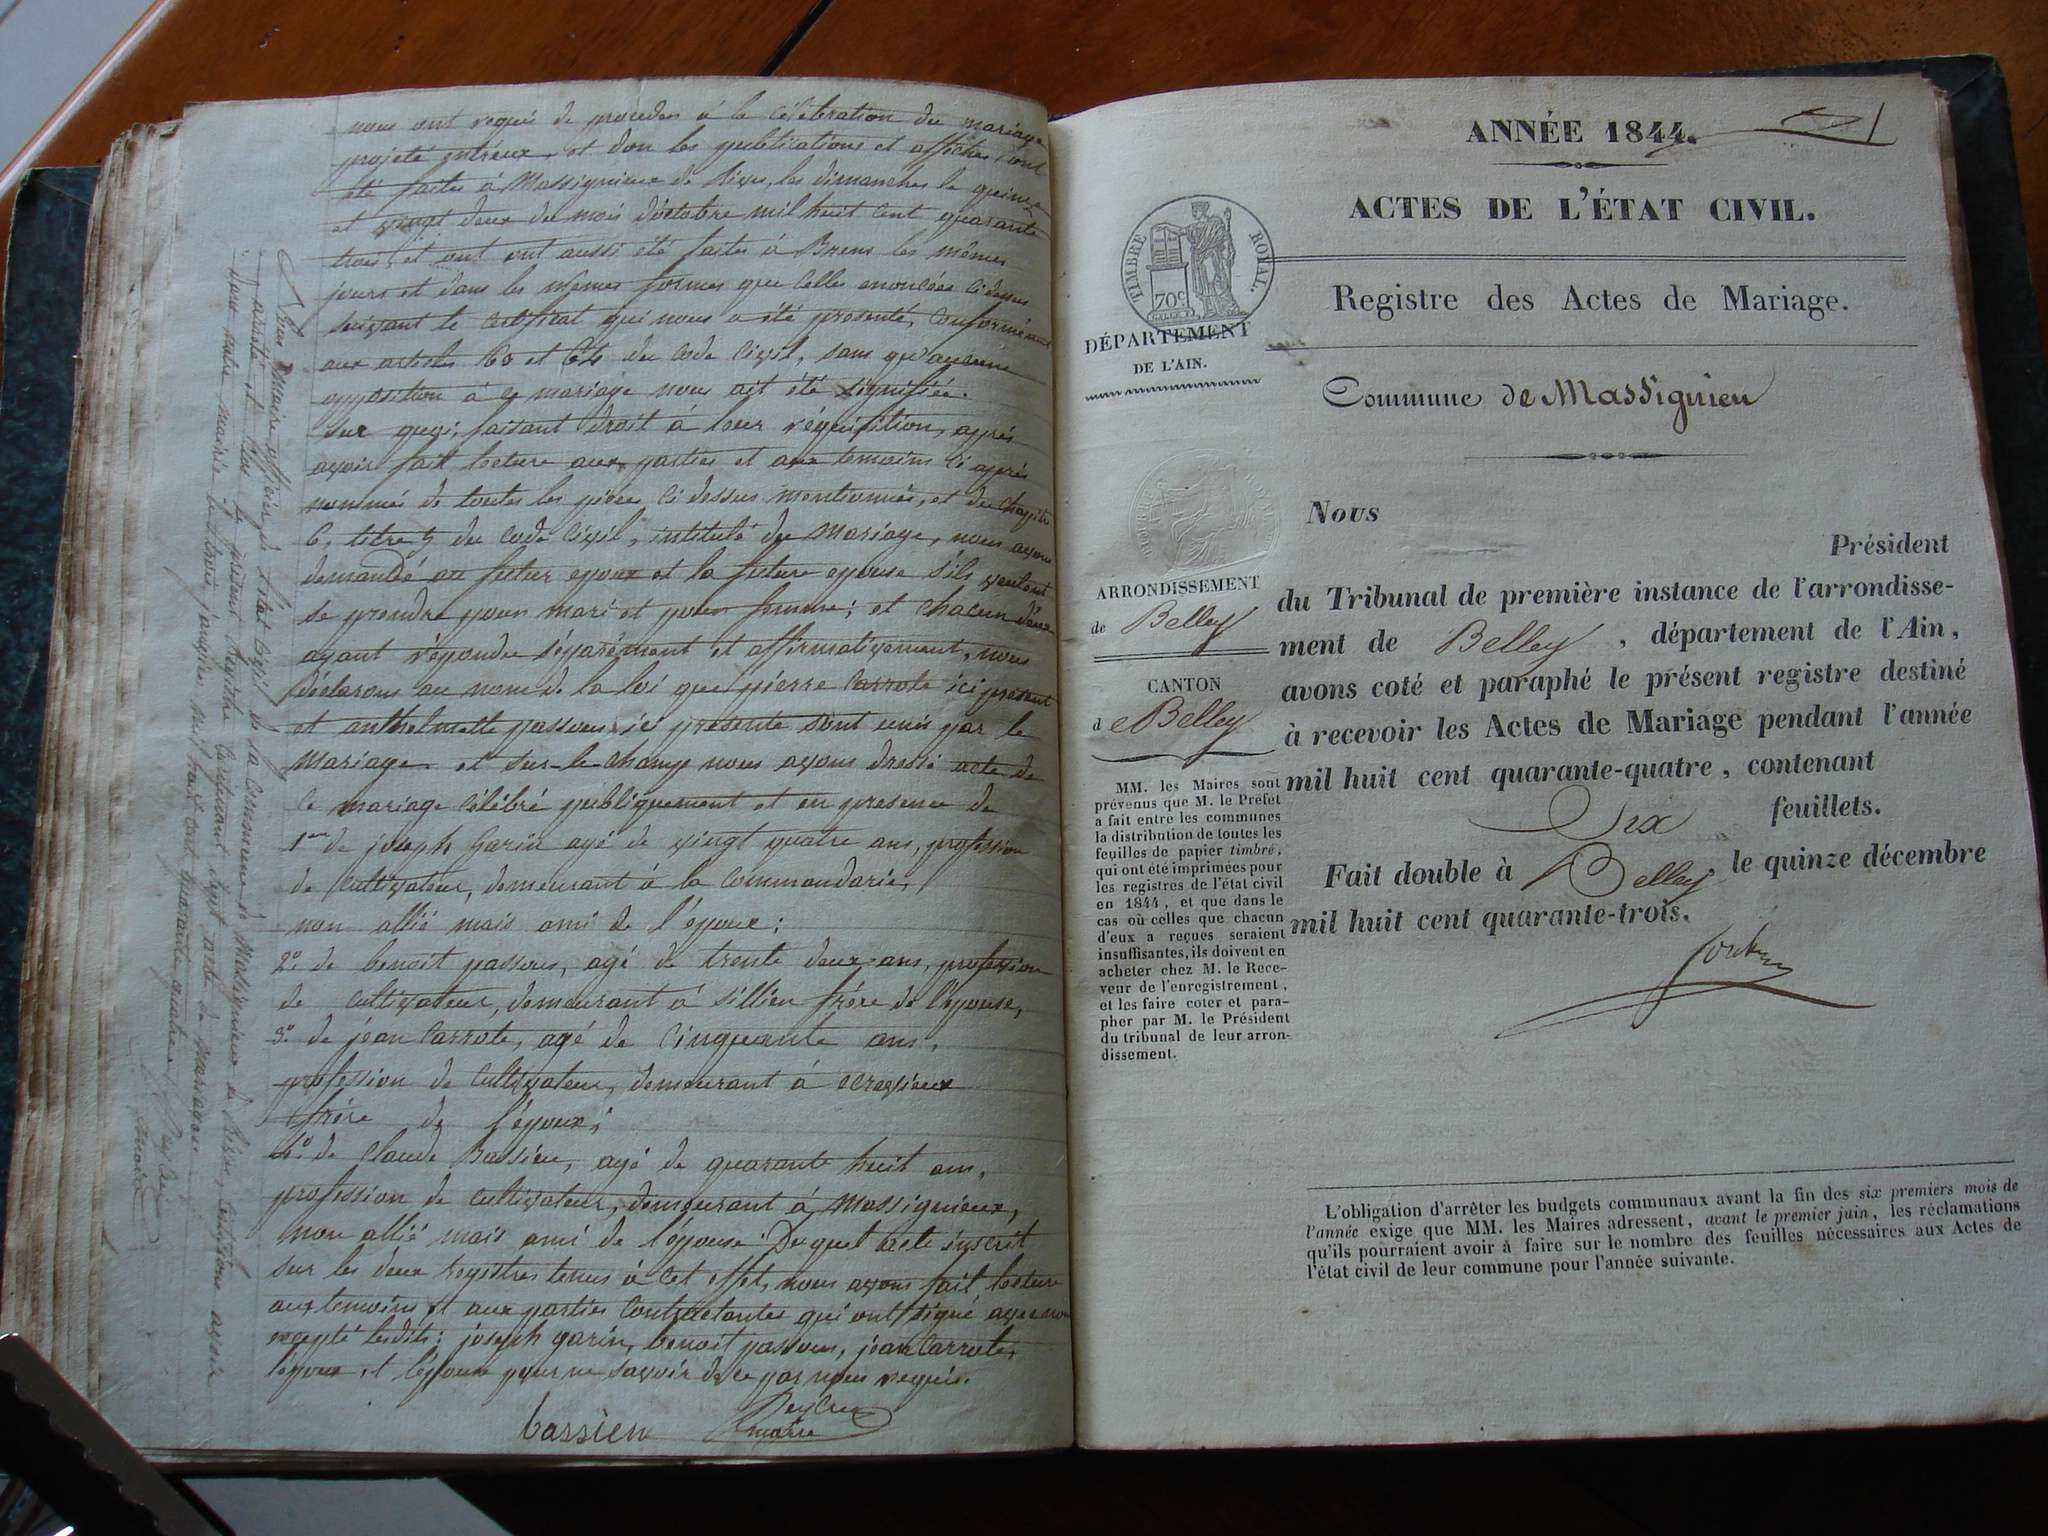 nous ont requis de proceder à la célébration du mariage
projeté entreux, et don les publications et affiches ont
été faites à Massignieux de Rives, les dimanches le quinze
et vingt deux du mois d'octobre mil huit cent quarante
trois, et ont ont aussi été faites à Brens les mêmes
jours et dans les mêmes formes que celles enoncées ci dessus
suivant le certificat qui nous a été presenté, conformément
aux articles 63 et 64 du code civil, sans qu'aucune
opposition à ce mariage nous ait été signifiée.
sur quoi, faisant droit à leur réquisition, après
avoir fait lecture aux parties et aux temoins ci après
nommés de toutes les pièces ci dessus mentionnés, et du chapitre
6, titre 5 du code civil, intitulé du Mariage, nous avons
demandé au futur epoux et la future epouse s'ils veulent
se prendre pour mari et pour femme; et chacun d'eux
ayant répondu séparément et affirmativement, nous
déclarons au nom de la loi que pierre Carrote ici présent
et anthelmette passoux ici presente sont unis par le
Mariage. et sur-le-champ nous avons dressé acte de
ce mariage célébré publiquement et en presence de
1er de joseph Garin agé de vingt quatre ans, profession
de cultivateur, demeurant à la Commandarie,
non allié mais ami de l'époux;
2º de benoit passoux, agé de trente deux ans, profession
de cultivateur, demeurant à sillieu frère de l'épouse,
3º de jean Carrote, agé de cinquante ans,
profession de cultivateur, demeurant à
frère de l'époux;
4º de Claude Bassieu, agé de quarante huit ans,
profession de cultivateur, demeurant à Massignieux,
non allié mais ami de l'épouse. Duquel acte inscrit
sur les deux registres tenus à cet effet, nous avons fait lecture
aux temoins et aux parties contractantes qui ont signé avec nous
excepté lesdits; joseph garin, benoit passoux, jean Carrote,
l'époux et l'épouse pour ne savoir de ce par nous requis.
bassieu
maire
Nous Maire officier de l'état civil de la commune de Massignieux de Rives, certifions avoir
arrêté et clos le présent Registre contenant sept actes de mariages
dans notre mairie le trois janvier mil huit cent quarante quatre
ANNÉE 1844.
ACTES DE L'ÉTAT CIVIL.
TIMBRE ROYAL.
70c
DÉPARTEMENT
DE L'AIN.
Registre des Actes de Mariage.
Commune de Massignieu
Nous
Président
du Tribunal de première instance de l'arrondisse-
ment de Belley, département de l'Ain,
avons coté et paraphé le présent registre destiné
à recevoir les Actes de Mariage pendant l'année
mil huit cent quarante-quatre, contenant
Six feuillets.
Fait double à Belley, le quinze décembre
mil huit cent quarante-trois.
ARRONDISSEMENT
de Belley
CANTON
de Belley
MM. les Maires sont
prévenus que M. le Préfet
a fait entre les communes
la distribution de toutes les
feuilles de papier timbré,
qui ont été imprimées pour
les registres de l'état civil
en 1844, et que dans le
cas où celles que chacun
d'eux a reçues seraient
insuffisantes, ils doivent en
acheter chez M. le Rece-
veur de l'enregistrement,
et les faire coter et para-
pher par M. le Président
du tribunal de leur arron-
dissement.
L'obligation d'arrêter les budgets communaux avant la fin des six premiers mois de
l'année exige que MM. les Maires adressent, avant le premier juin, les réclamations
qu'ils pourraient avoir à faire sur le nombre des feuilles nécessaires aux Actes de
l'état civil de leur commune pour l'année suivante.